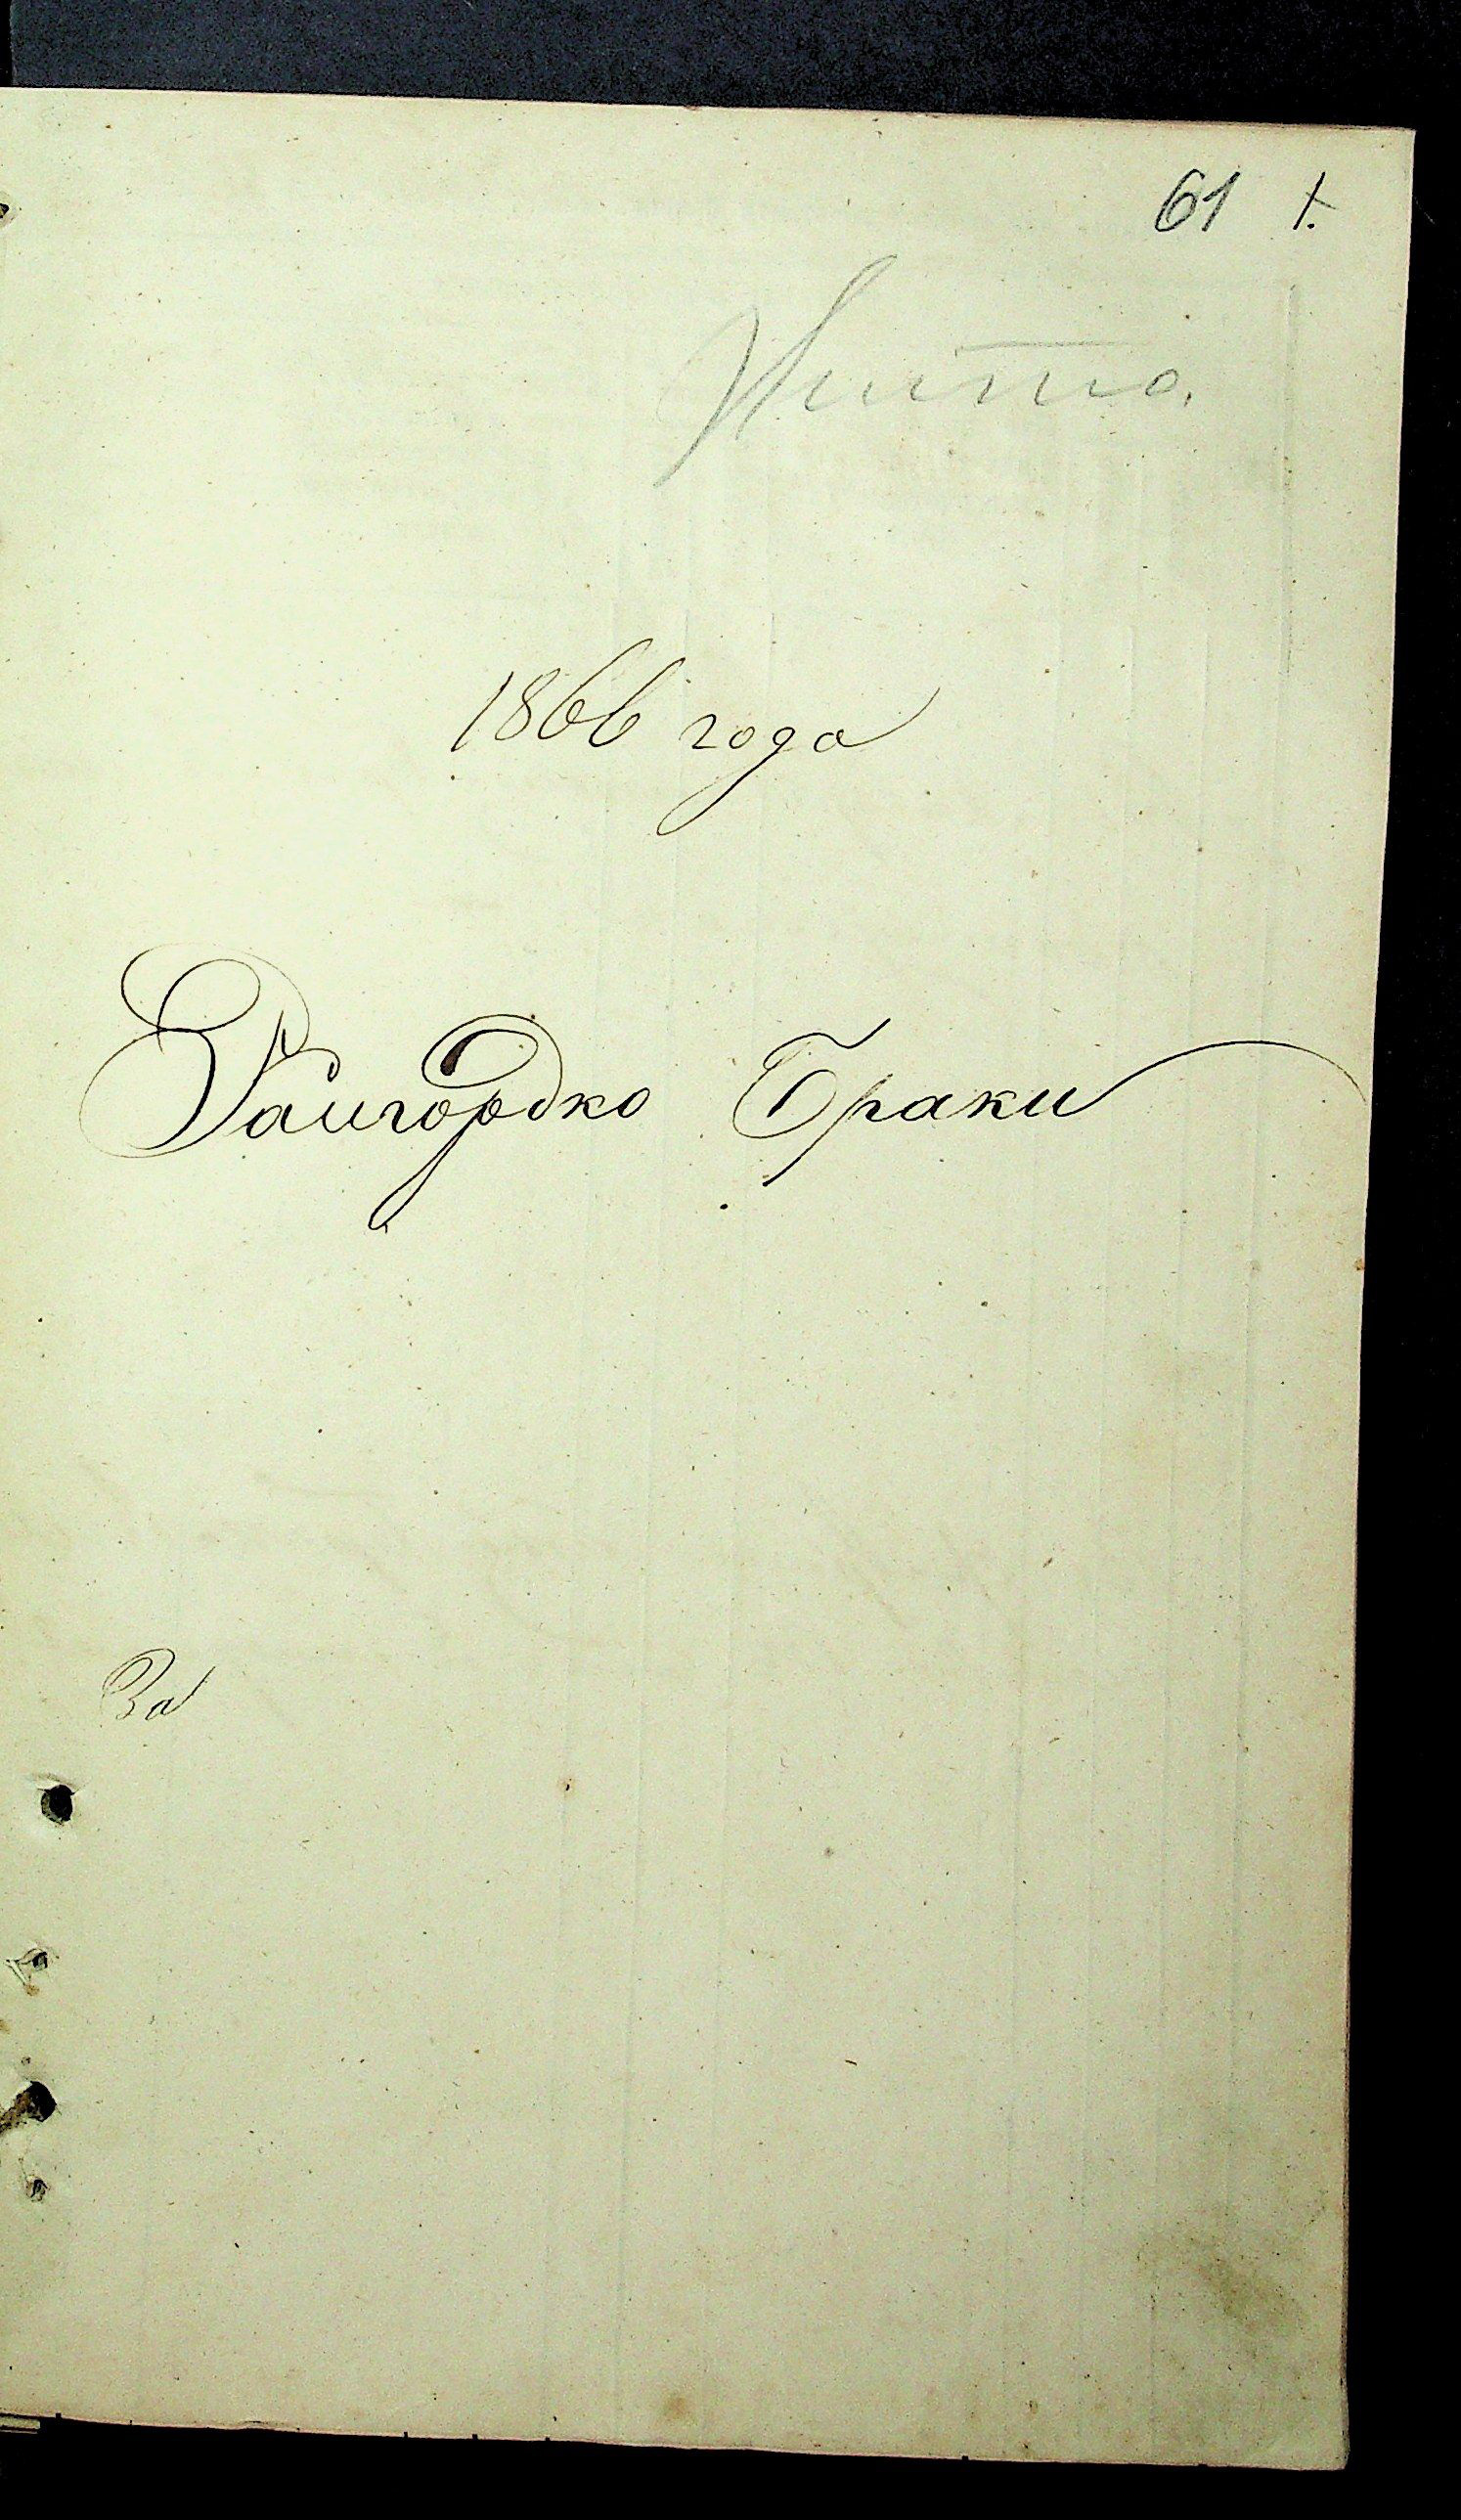 61 1.
Жито.
1866 года
Райгородко Браки
За